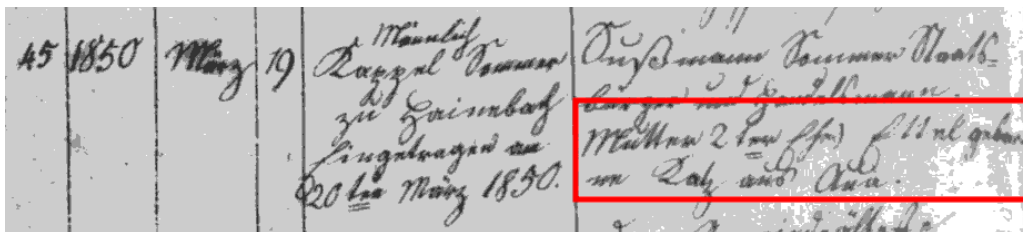 45 1850 März 19 Männlich
Kappel Sommer
zu Hainebach
Eingetragen am
20ten März 1850.
Sußmann Sommer Staats-
bürger und Handelsmann.
Mutter 2ter Ehe, Ettel gebor
ne Katz aus Aua.